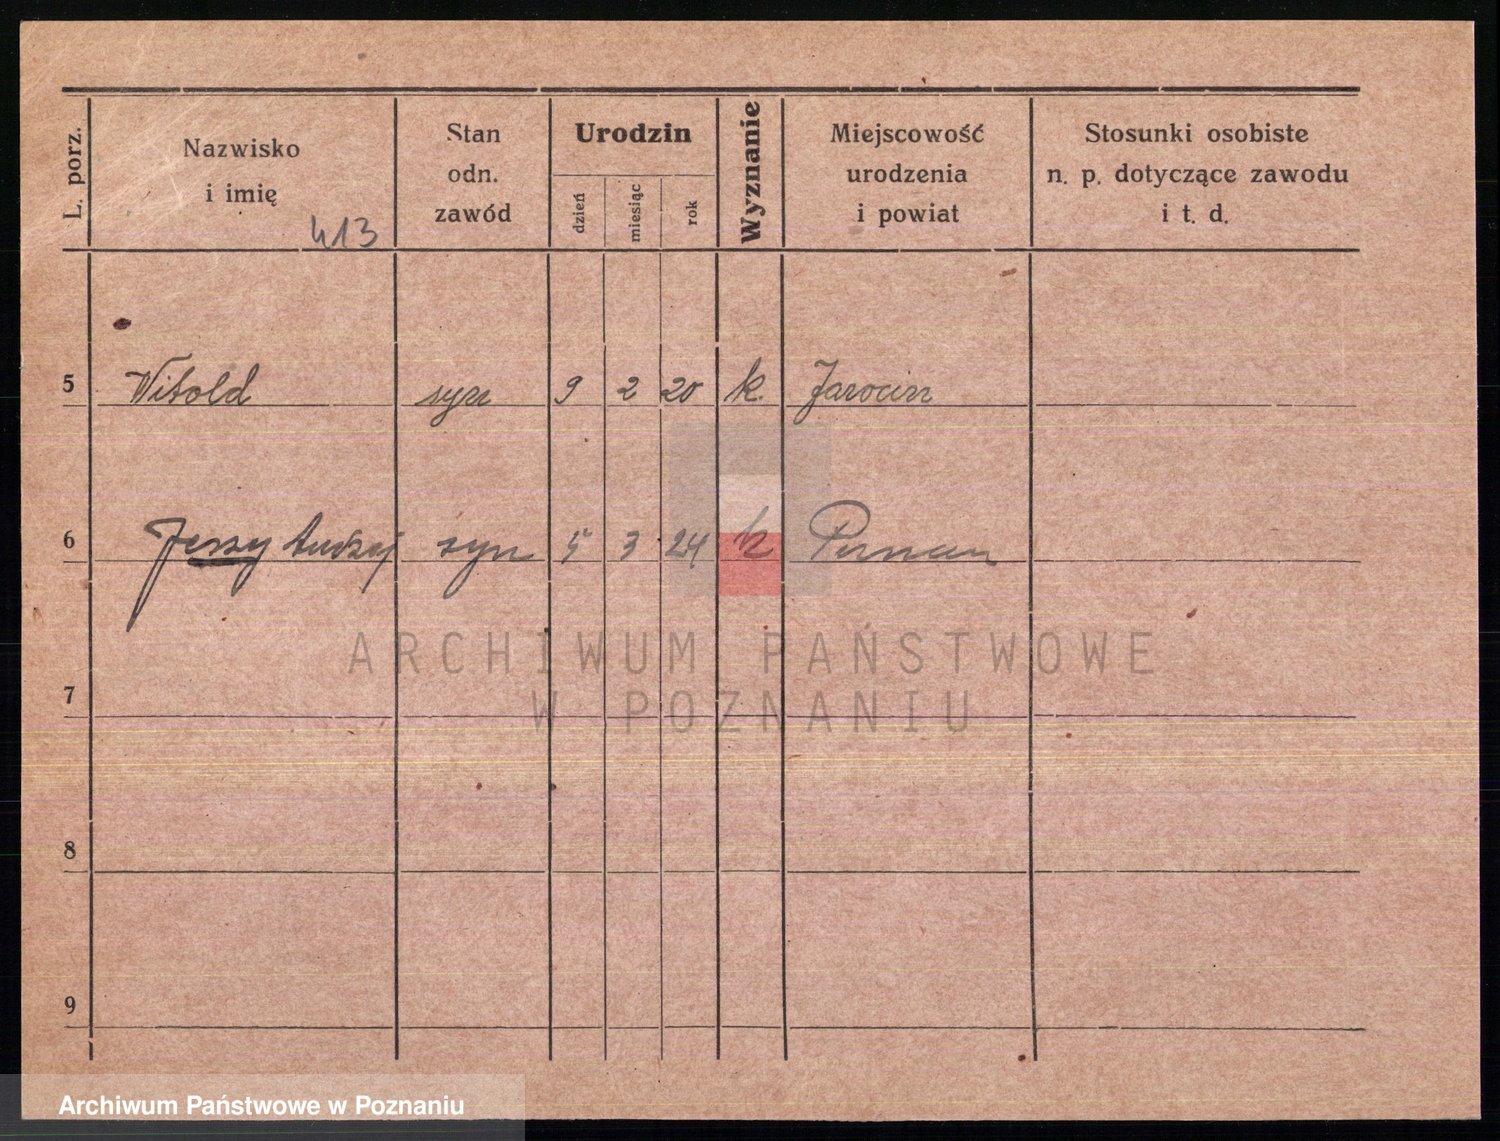 L. porz.
Nazwisko
i imię
413
Stan
odn.
zawód
Urodzin
dzień
miesiąc
rok
Wyznanie
Miejscowość
urodzenia
i powiat
Stosunki osobiste
n. p. dotyczące zawodu
i t. d.
5 Witold syn 9 2 20 k. Jarocin
6 Jerzy Andrzej syn 5 3 24 k Poznań
ARCHIWUM PAŃSTWOWE
W POZNANIU
7
8
9
Archiwum Państwowe w Poznaniu